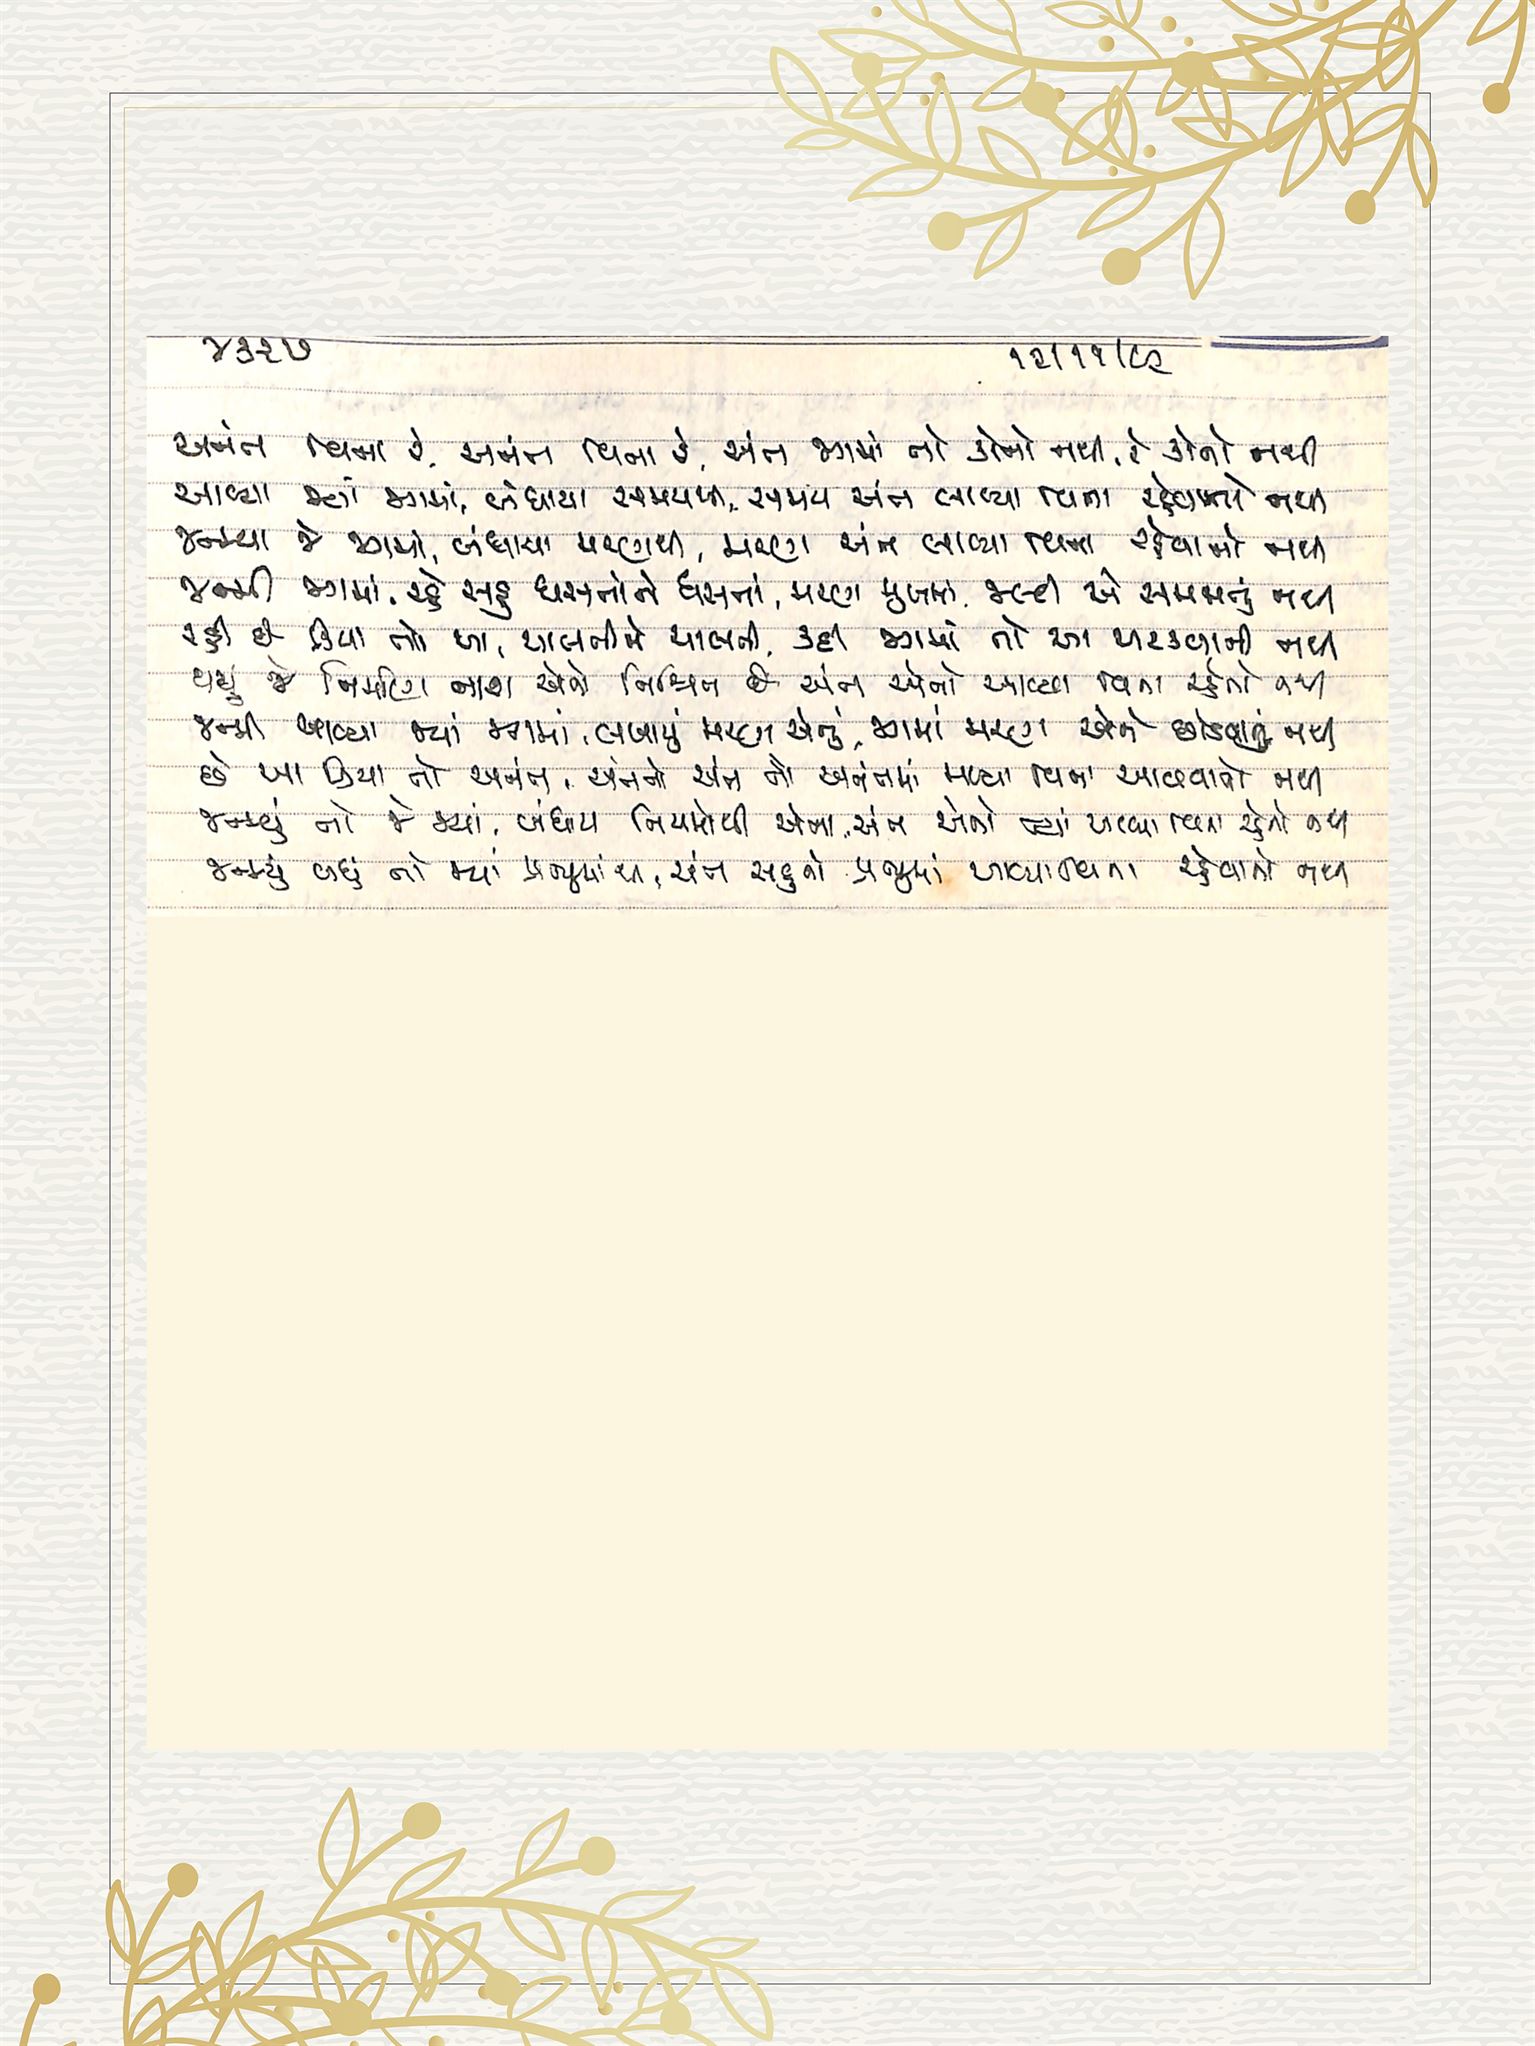 ૪૩૨૭ ૧૨/૧૧/૯૨
અનંત વિના રે, અનંત વિના રે, અંત જગમાં તો કોનો નથી, રે કોનો નથી
આવ્યા જ્યાં જગમાં, બંધાયા સમયથી, સમય અંત લાવ્યા વિના રહેવાનો નથી
જન્મ્યા જે જગમાં, બંધાયા મરણથી, મરણ અંત લાવ્યા વિના રહેવાનો નથી
જન્મી જગમાં, રહે સહુ ધસતાંને ધસતાં, મરણ મુખમાં, જલ્દી એ સમજાતું નથી
રહી છે ક્રિયા તો આ, ચાલતીને ચાલતી, કદી જગમાં તો આ અટકવાની નથી
થયું જે નિર્માણ નાશ એનો નિશ્ચિત છે અંત એનો આવ્યા વિના રહેતો નથી
જન્મી આવ્યા જ્યાં જગમાં, લખાયું મરણ એનું, જગમાં મરણ એને છોડવાનું નથી
છે આ ક્રિયા તો અનંત, અંતનો અંત તો અનંતમાં મળ્યા વિના આવવાનો નથી
જન્મ્યું તો જે જ્યાં, બંધાય નિયમોથી એના, અંત એનો ત્યાં આવ્યા વિના રહેતો નથી
જન્મ્યું બધું તો જ્યાં પ્રભુમાંથી, અંત સહુનો પ્રભુમાં આવ્યા વિના રહેવાનો નથી